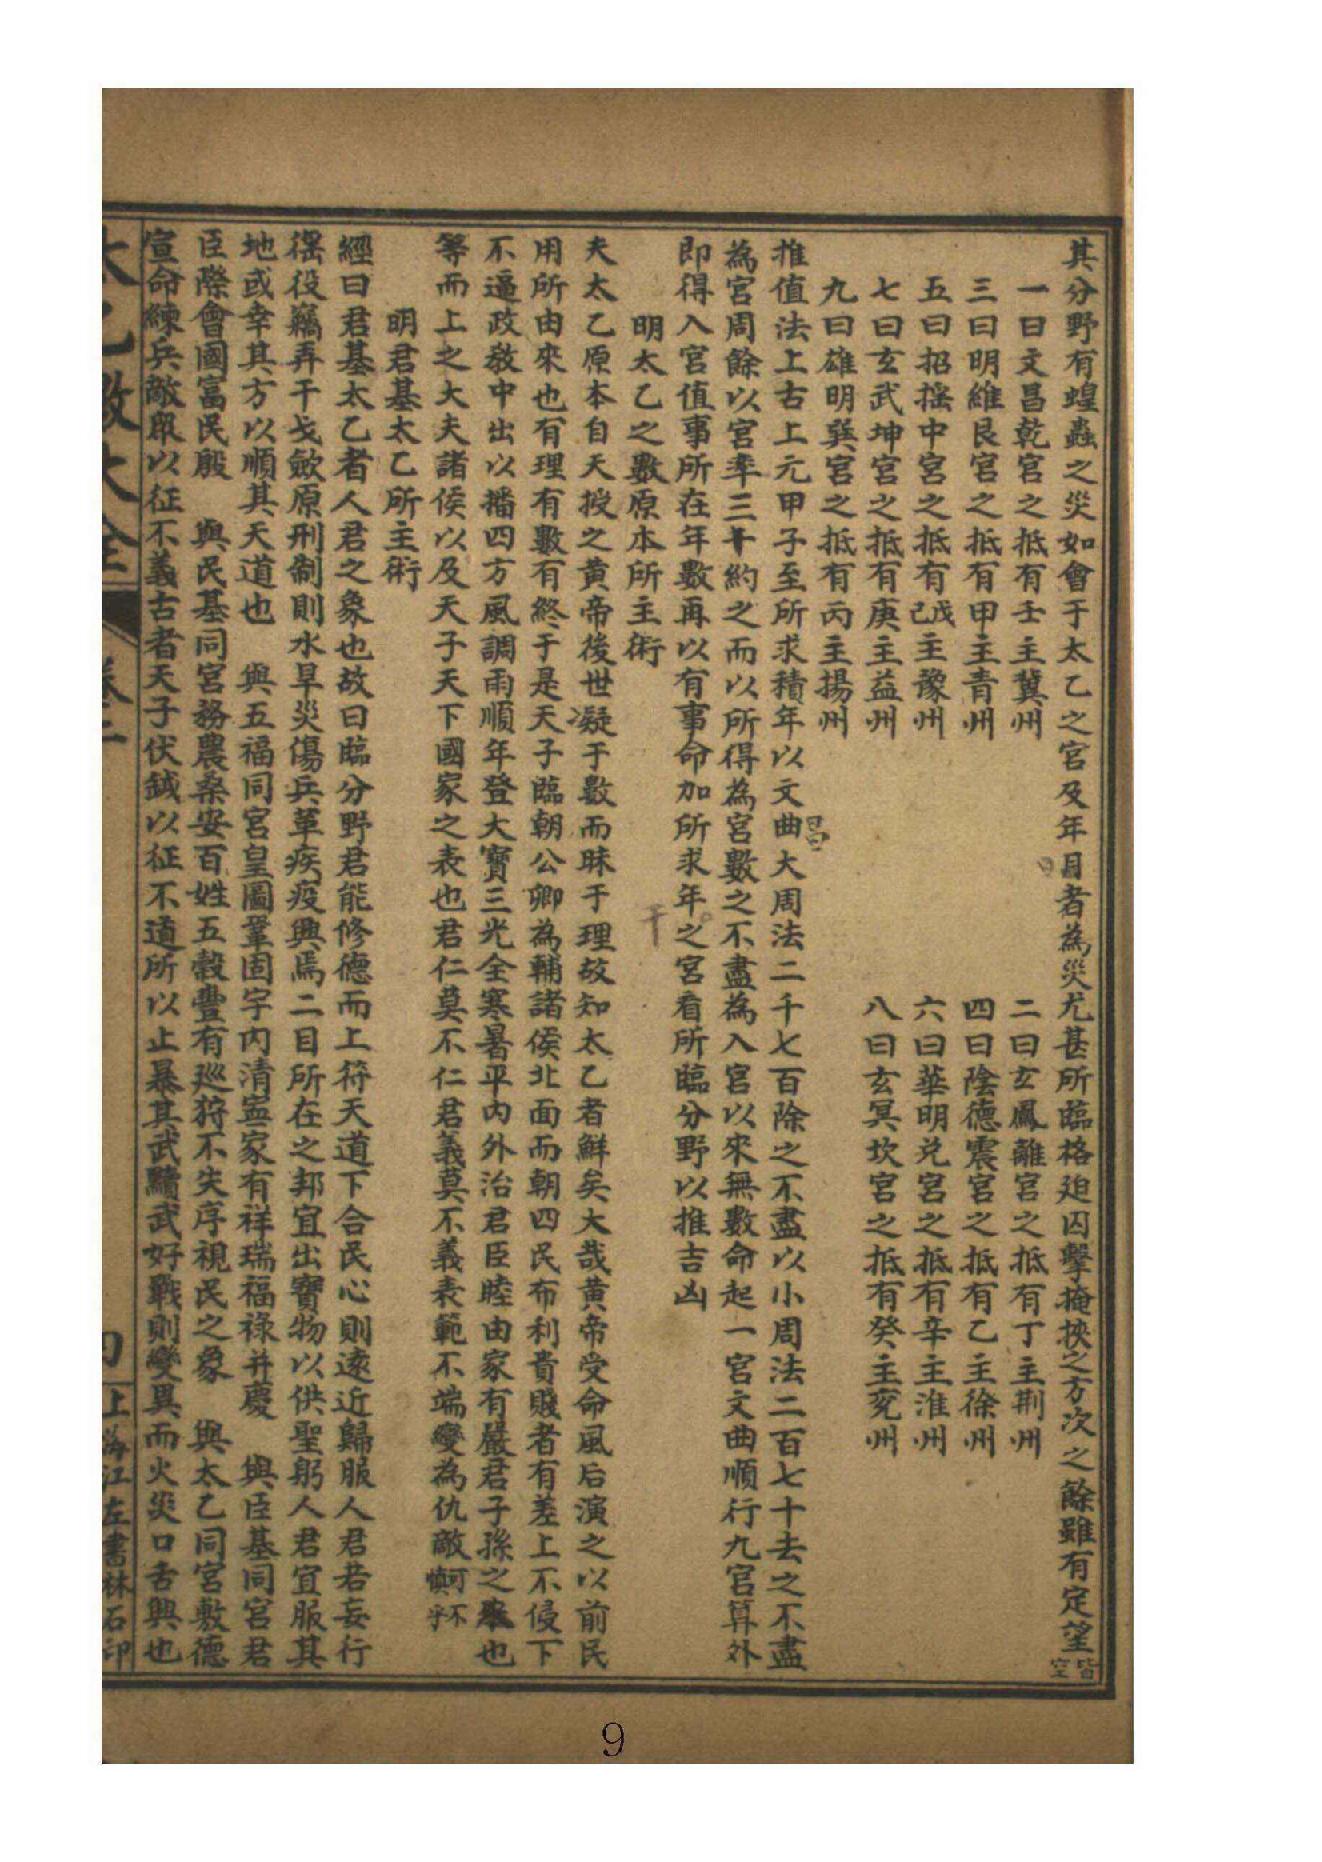 其分野有蝗蟲之災如會于太乙之宮及年目者為災尤甚所臨格迫囚擊掩挾之方次之餘雖有定望皆空
一曰文昌乾宮之抵有壬主冀州 二曰玄鳳離宮之抵有丁主荆州
三曰明維艮宮之抵有甲主青州 四曰陰德震宮之抵有乙主徐州
五曰招摇中宮之抵有戊己主豫州 六曰華明兑宮之抵有辛主淮州
七曰玄武坤宮之抵有庚主益州 八曰玄冥坎宮之抵有癸主兖州
九曰雄明巽宮之抵有丙主揚州
推值法上古上元甲子至所求積年以文曲大周法二千七百除之不盡以小周法二百七十去之不盡
昌
為宮周餘以宮率三十約之而以所得為宮數之不盡為入宮以來無數命起一宮文曲順行九宮算外
即得入宮值事所在年數再以有事命加所求年之宮看所臨分野以推吉凶
干
明太乙之數原本所主術
夫太乙原本自天授之黄帝後世凝于數而昧于理故知太乙者鮮矣大哉黄帝受命風后演之以前民
用所由來也有理有數有終于是天子臨朝公卿為輔諸侯北面而朝四民布利貴賤者有差上不侵下
不逼政敎中出以播四方風調雨順年登大寶三光全寒暑平內外治君臣睦由家有嚴君子孫之也
等而上之大夫諸侯以及天子天下國家之表也君仁莫不仁君義莫不義表範不端變為仇敵可不慎乎
明君基太乙所主術
經曰君基太乙者人君之象也故曰臨分野君能修德而上符天道下合民心則遠近歸服人君若妄行
徭役竊弄干戈斂原刑制則水旱災傷兵革疾疫興焉二目所在之邦宜出寶物以供聖躬人君宜服其
地或幸其方以順其天道也 與五福同宮皇圖鞏固宇內清寍家有祥瑞福禄并慶 與臣基同宮君
臣際會國富民殷 與民基同宮務農桑安百姓五穀豐有巡狩不失序視民之象 與太乙同宮敷德
宣命練兵敵眾以征不義古者天子伏鉞以征不道所以止暴其武黷武好戰則變異而火災口舌興也
太乙數大全 卷二 四 上海江左書林石印
9